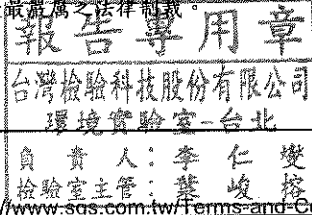 最嚴厲之法律制裁。
報告專用章
台灣檢驗科技股份有限公司
環境實驗室-台北
負責人：李仁燮
檢驗室主管：葉峻榕
/www.sgs.com.tw/Terms-and-Co